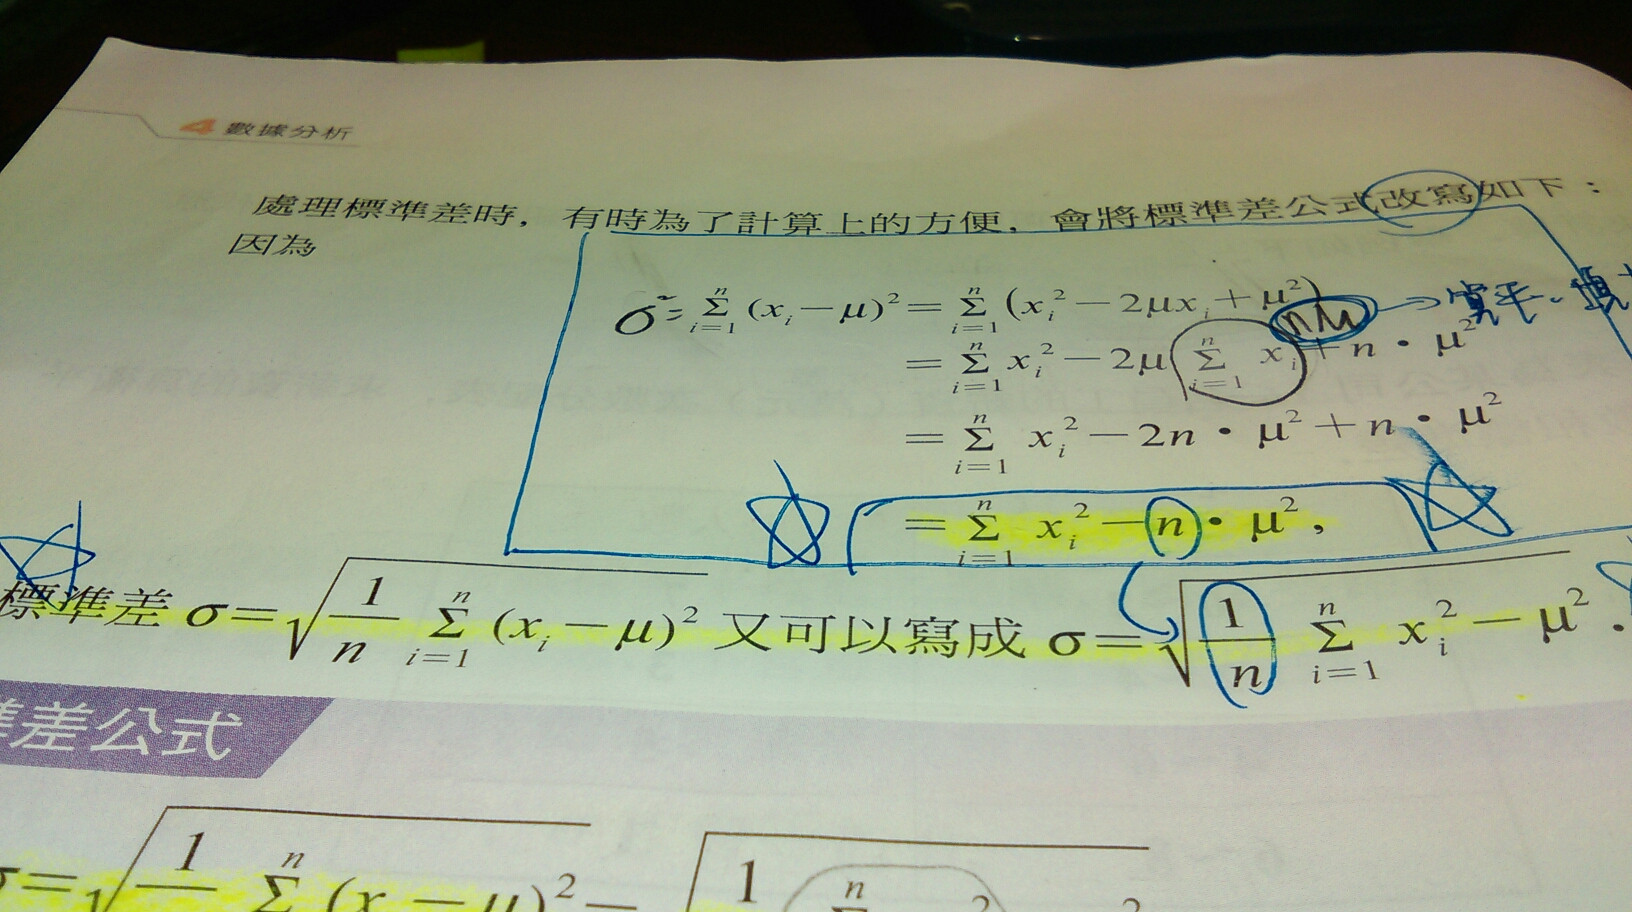 4 數據分析
處理標準差時，有時為了計算上的方便，會將標準差公式改寫如下：
因為
σ² = Σ_{i=1}^{n} (x_i − μ)² = Σ_{i=1}^{n} (x_i² − 2μx_i + μ²)
nμ →
= Σ_{i=1}^{n} x_i² − 2μ Σ_{i=1}^{n} x_i + n · μ²
= Σ_{i=1}^{n} x_i² − 2n · μ² + n · μ²
= Σ_{i=1}^{n} x_i² − n · μ²,
標準差 σ = √(1/n Σ_{i=1}^{n} (x_i − μ)²) 又可以寫成 σ = √(1/n Σ_{i=1}^{n} x_i² − μ²) .
準差公式